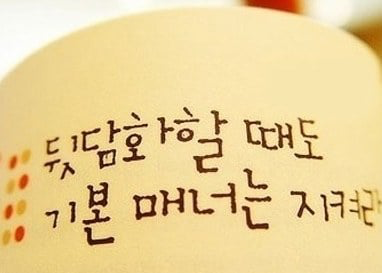 뒷담화할 때도
기본 매너는 지켜라